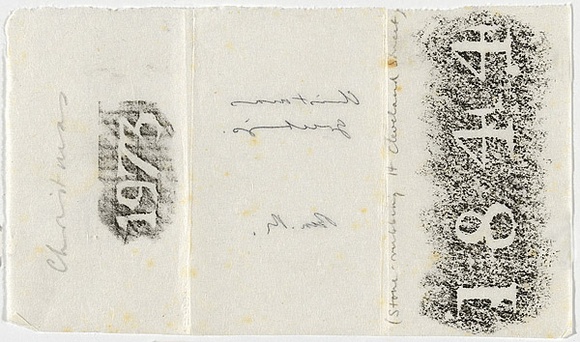 Christmas
1973
Christmas
Greetings
(Stone-rubbing 14 Cleveland Street)
1844